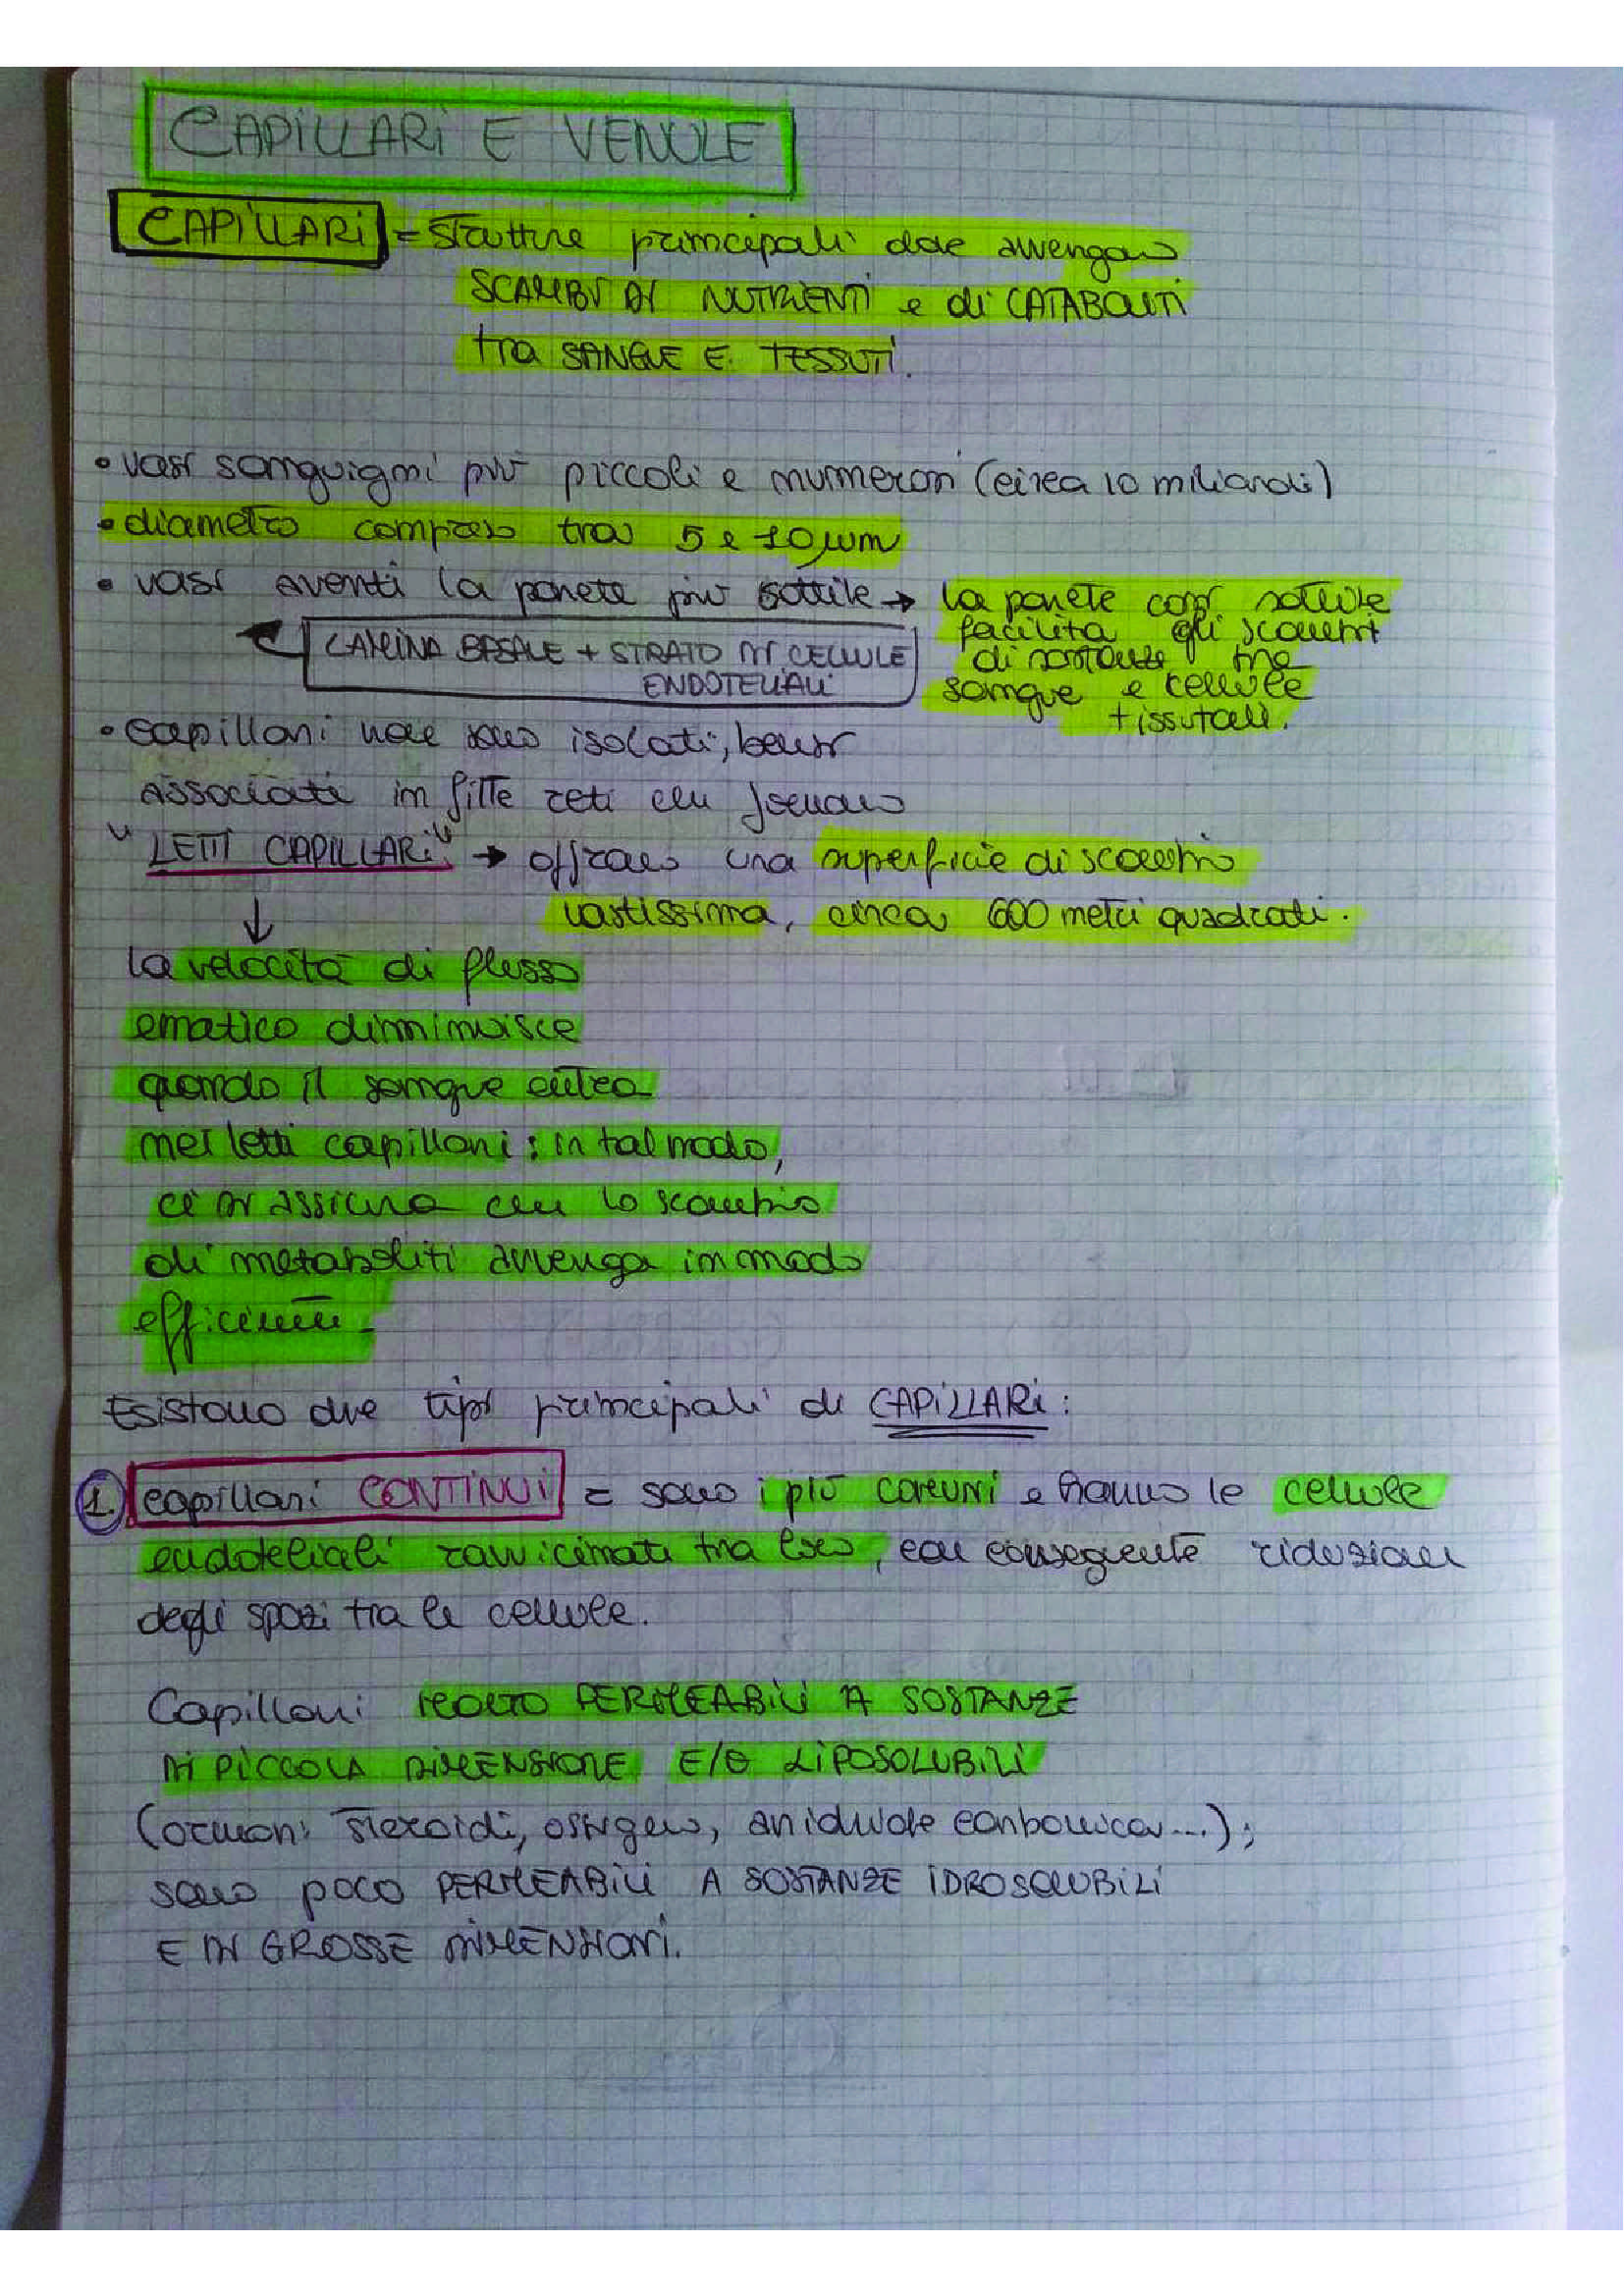 CAPILLARI E VENULE
CAPILLARI = strutture principali dove avvengono
SCAMBI DI NUTRIENTI e di CATABOLITI
tra SANGUE E TESSUTI.
• vasi sanguigni più piccoli e numerosi (circa 10 miliardi)
• diametro compreso tra 5 e 10 μm
• vasi aventi la parete più sottile → la parete così sottile
facilita gli scambi
LAMINA BASALE + STRATO DI CELLULE
di sostanze tra
ENDOTELIALI
sangue e cellule
tissutali.
• capillari non sono isolati, bensì
associati in fitte reti che formano
"LETTI CAPILLARI" → offrono una superficie di scambio
↓ vastissima, circa 600 metri quadrati.
la velocità di flusso
ematico diminuisce
quando il sangue entra
nei letti capillari: in tal modo,
ci si assicura che lo scambio
di metaboliti avvenga in modo
efficiente.
Esistono due tipi principali di CAPILLARI:
1. capillari CONTINUI = sono i più comuni e hanno le cellule
endoteliali ravvicinate tra loro, con conseguente riduzione
degli spazi tra le cellule.
Capillari MOLTO PERMEABILI A SOSTANZE
DI PICCOLA DIMENSIONE E/O LIPOSOLUBILI
(ormoni steroidi, ossigeno, anidride carbonica...);
sono poco PERMEABILI A SOSTANZE IDROSOLUBILI
E DI GROSSE DIMENSIONI.